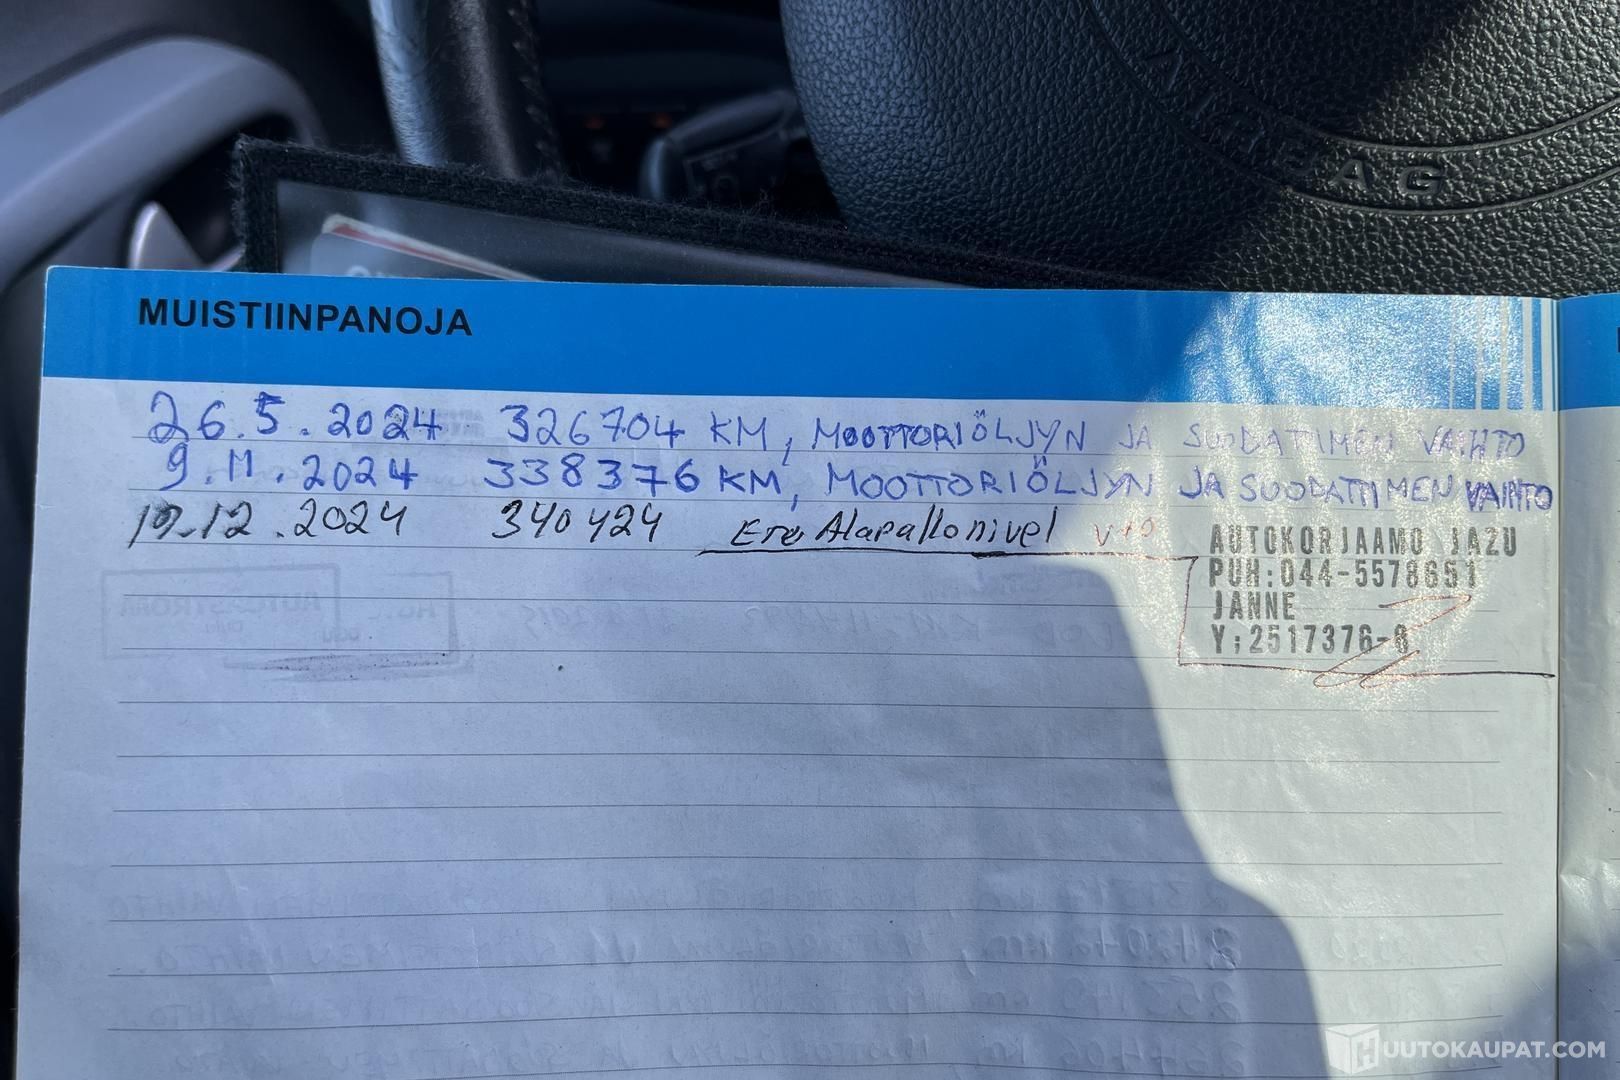 AIRBAG
MUISTIINPANOJA
26.5.2024 326704 KM, MOOTTORIÖLJYN JA SUODATTIMEN VAIHTO
9.11.2024 338376 KM, MOOTTORIÖLJYN JA SUODATTIMEN VAIHTO
19.12.2024 340424 Etu Alapallonivel v+o
AUTOKORJAAMO JAZU
PUH:044-5578651
JANNE
Y:2517376-8
HUUTOKAUPAT.COM